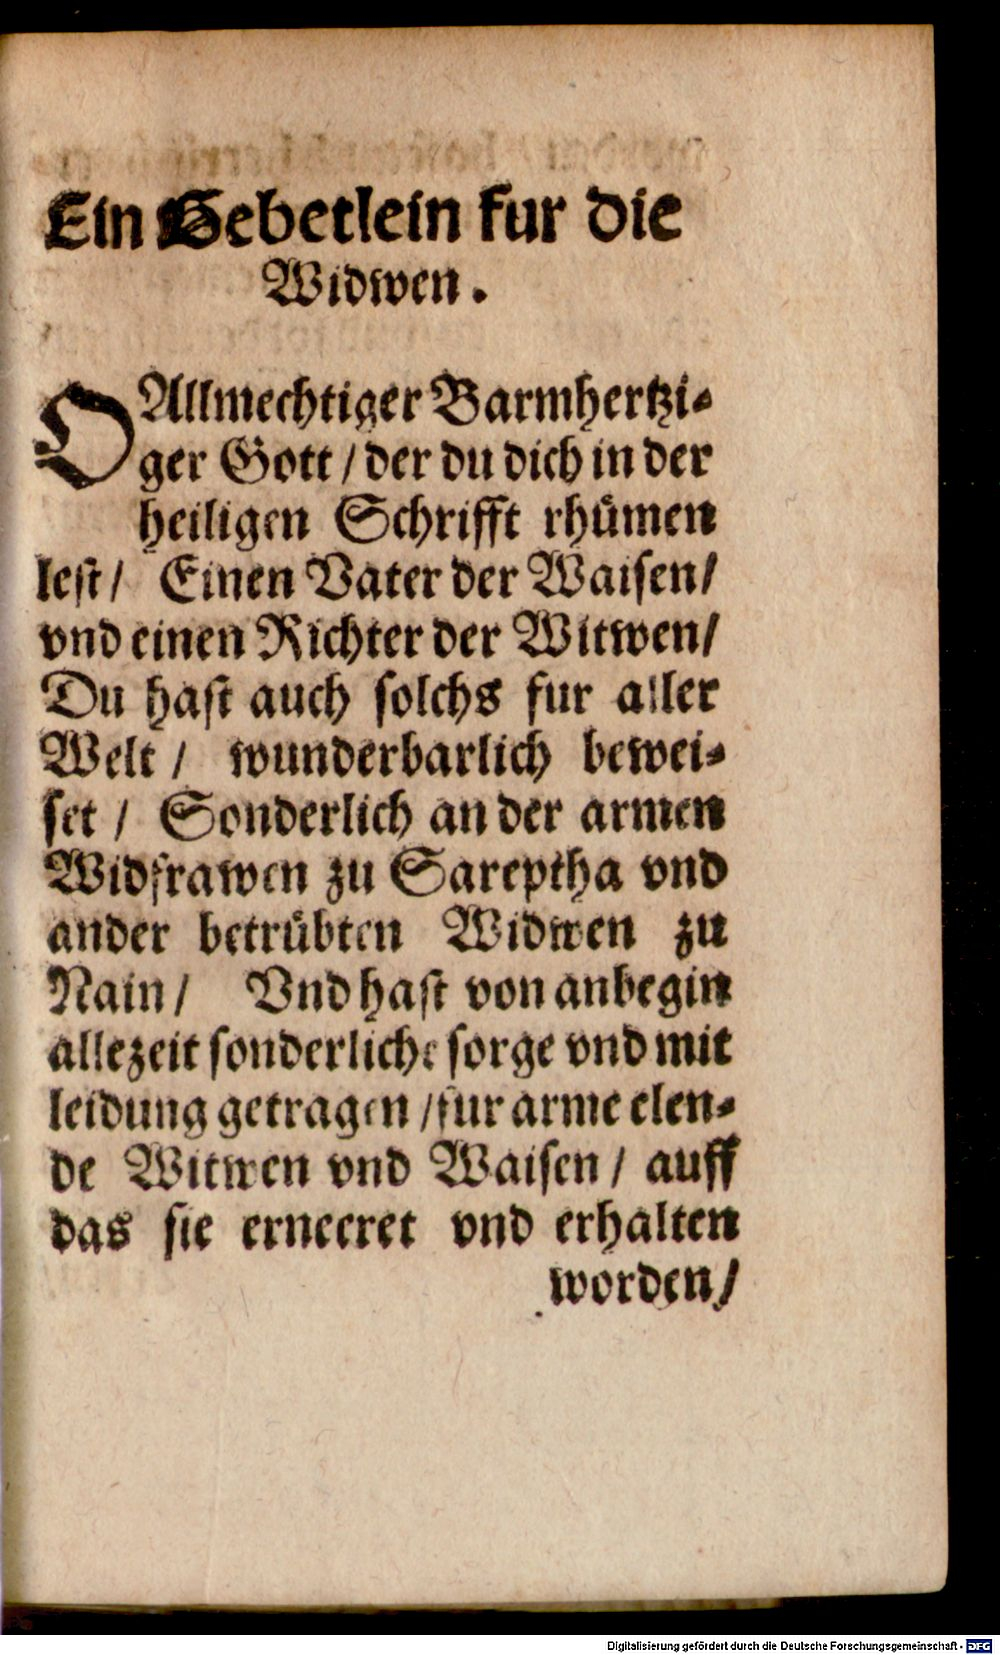 Ein Gebetlein fur die
Widwen.
O Allmechtiger Barmhertzi-
ger Gott / der du dich in der
heiligen Schrifft rhümen
lest / Einen Vater der Waisen /
vnd einen Richter der Witwen /
Du hast auch solchs fur aller
Welt / wunderbarlich bewei-
set / Sonderlich an der armen
Widfrawen zu Sareptha vnd
ander betrübten Widwen zu
Nain / Vnd hast von anbegin
allezeit sonderliche sorge vnd mit
leidung getragen / fur arme elen-
de Witwen vnd Waisen / auff
das sie erneeret vnd erhalten
worden /
Digitalisierung gefördert durch die Deutsche Forschungsgemeinschaft - DFG